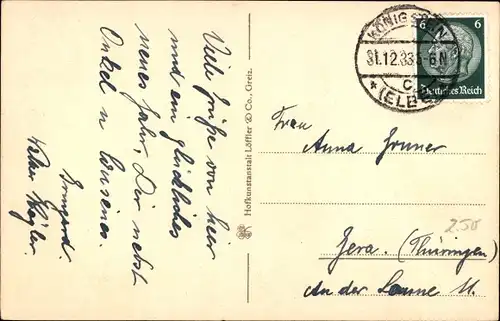 Viele Grüße von hier
und ein glückliches
neues Jahr, Dir nebst
Onkel u.
Irmgard
Hofkunstanstalt Löffler & Co., Greiz.
KÖNIGSTEIN
31.12.33. 5-6 N
c
(ELBE)
6 6
Deutsches Reich
Frau
Anna
2.50
Gera. (Thüringen)
An der Sonne 11.